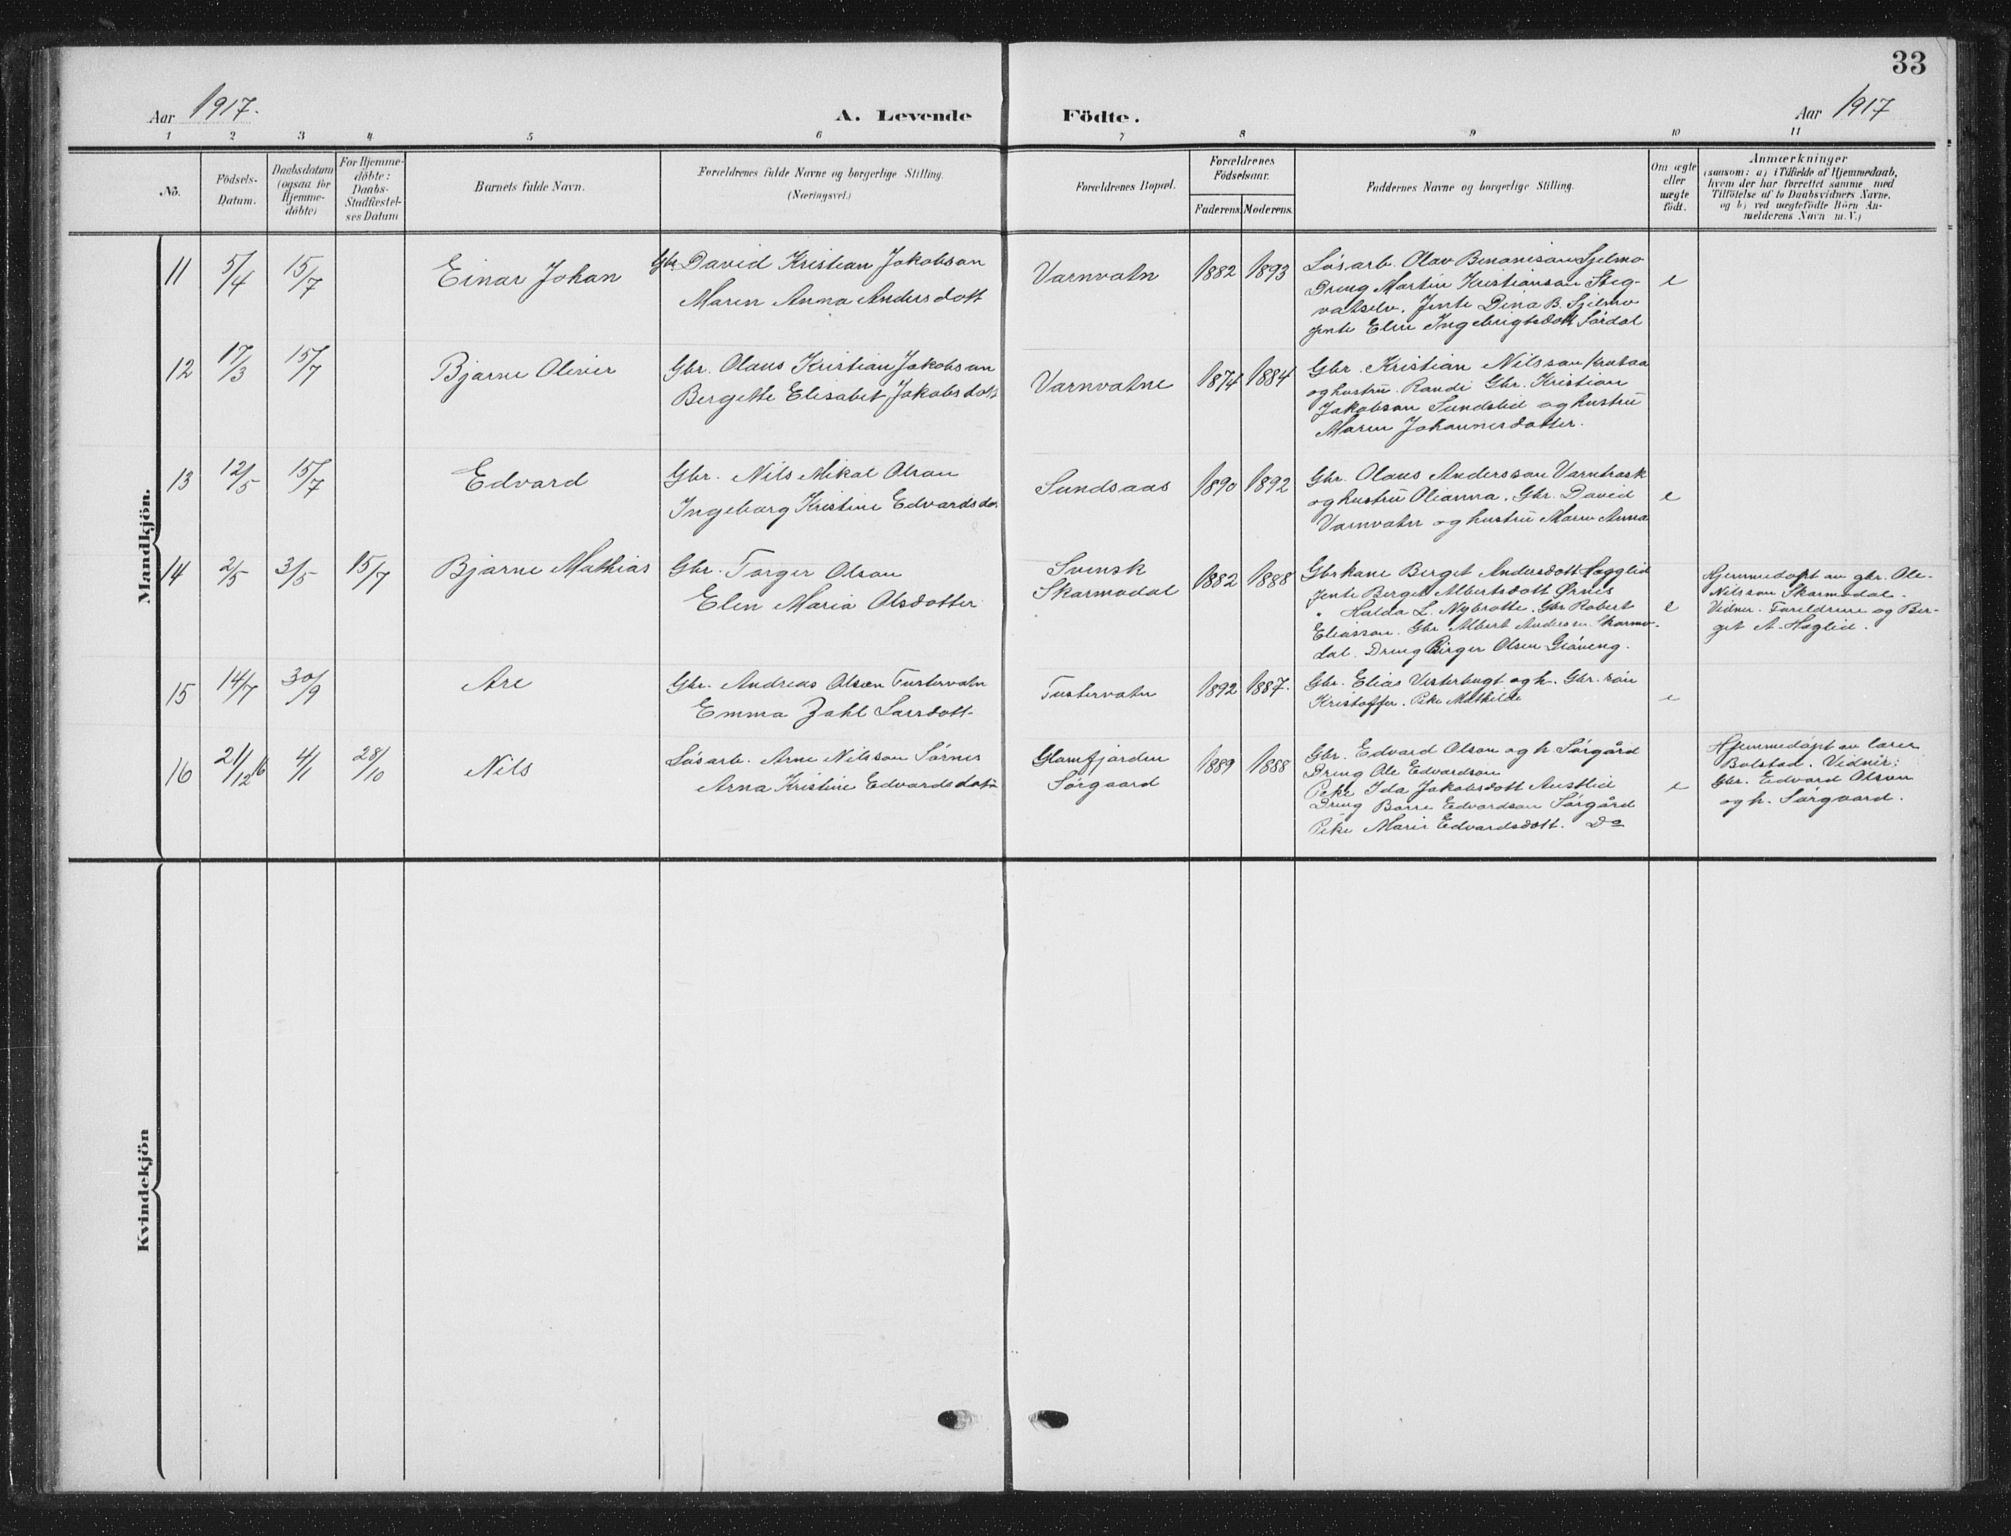 33
Aar 1917.
A. Levende
Födte.
Aar 1917
1 2 3 4 5 6 7 8 9 10 11
No.
Födsels-
Datum.
Daabsdatum
(ogsaa for
Hjemme-
döbte)
For Hjemme-
döbte:
Daabs-
Stadfæstel-
ses Datum
Barnets fulde Navn.
Forældrenes fulde Navne og borgerlige Stilling.
(Næringsvei.)
Forældrenes Bopæl.
Forældrenes
Födselsaar.
Faderens
Moderens.
Faddernes Navne og borgerlige Stilling.
Om ægte
eller
uægte
födt.
Anmærkninger
(saasom: a) i Tilfælde af Hjemmedaab,
hvem der har forrettet samme med
Tilföielse af to Daabsvidners Navne,
og b) ved uægtefödte Börn An-
melderens Navn m. V.)
Mandkjön.
11 5/4 15/7
Einar Johan
Gbr. David Kristian Jakobson
Maren Anna Andersdott
Varnvatn
1882 1893
Løsarb. Olav Benonison Sjelmo
Dreng Martin Kristianson Steg-
vatselv. Jente Dina B. Sjelmo
Jente Elin Ingebrigtsdott Sørdal
e
12 17/3 15/7
Bjarne Oliver
Gbr. Olaus Kristian Jakobson
Bergette Elisabet Jakobsdott
Varnvatne
1874 1884
Gbr. Kristian Nilsson Krutaa
og hustru Randi Gbr. Kristian
Jakobson Sundslid og hustru
Maren Johannesdotter.
13 12/5 15/7
Edvard
Gbr. Nils Mikal Olson
Ingeborg Kristine Edvardsdo.
Sundsaas
1890 1892
Gbr. Olaus Andersson Varntrask
og hustru Olianna. Gbr. David
Varnvatn og hustru Maren Anna
e
14 2/5 3/5 15/7
Bjarne Mathias
Gbr. Torger Olson
Elen Maria Olsdotter
Svensk
Skarmodal
1882 1888
Gbrkone Berget Andersdott Hagglid
Jente Berget Albertsdott Ørnes
" Halda L. Nybrotte. Gbr Robert
Eliasson. Gbr Albert Anderson Skarmo-
dal. Dreng Birger Olsen
e
Hjemmedøpt av gbr. Ole
Nilsson Skarmodal.
Vidner. Foreldrene og Ber-
get A. Haglid.
15 14/7 30/9
Are
Gbr. Andreas Olsen Tustervatn
Emma Zahl Larsdott
Tustervatn
1892 1887.
Gbr. Elias Vesterbugt og h. Gbr. søn
Kristoffer. Pike Mathilde
e
16 21/12 16 4/1 28/10
Nils
Løsarb. Arne Nilsson Sørnes
Arna Kristine Edvardsdotr
Glomfjorden
Sørgaard
1889 1888
Gbr. Edvard Olson og h. Sørgård
Dreng Ole Edvardson
Pike Ida Jakobsdott Austlid
Dreng Borre Edvardson Sørgård
Pike Marie Edvardsdott. Do
e
Hjemmedøpt av lærer
Bolstad. Vidner:
Gbr. Edvard Olson
og h. Sørgaard.
Kvindekjön